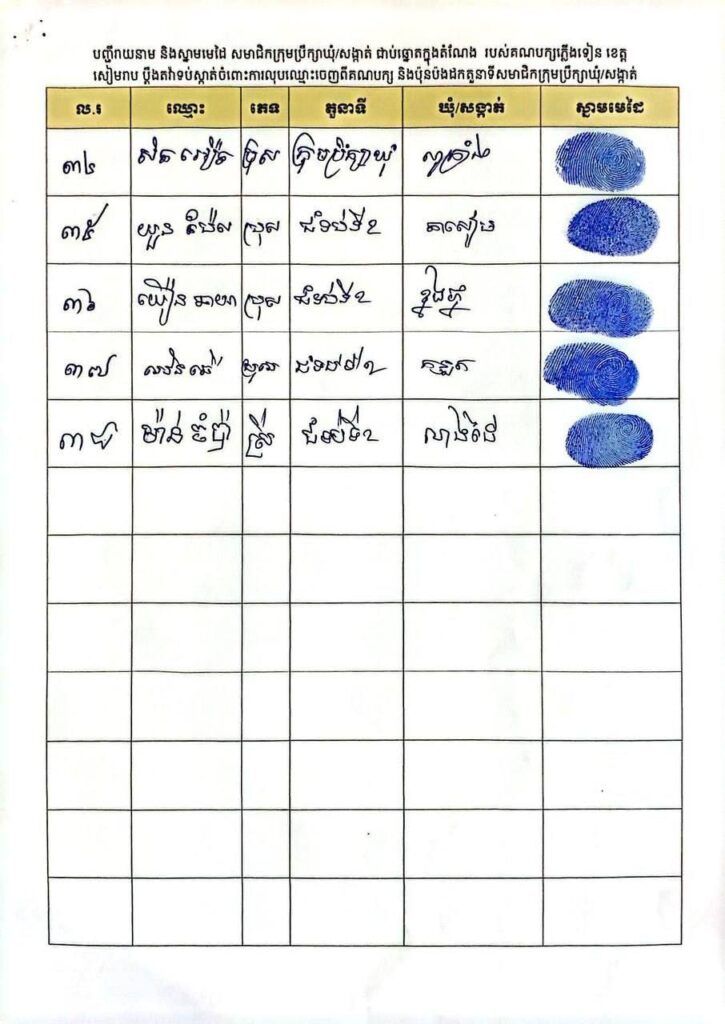 បញ្ជីរាយនាម និងស្នាមមេដៃ សមាជិកក្រុមប្រឹក្សាឃុំ/សង្កាត់ ជាប់ឆ្នោតក្នុងតំណែង របស់គណបក្សភ្លើងទៀន ខេត្ត
សៀមរាប ប្ដឹងតវ៉ាទប់ស្កាត់ចំពោះការលុបឈ្មោះចេញពីគណបក្ស និងប៉ុនប៉ងដកតួនាទីសមាជិកក្រុមប្រឹក្សាឃុំ/សង្កាត់
ល.រ ឈ្មោះ ភេទ តួនាទី ឃុំ/សង្កាត់ ស្នាមមេដៃ
៣៤ ប្រុស ក្រុមប្រឹក្សាឃុំ
៣៥ យួន ប្រុស ជំទប់ទី២
៣៦ ប្រុស ជំទប់ទី២
៣៧ ប្រុស ជំទប់ទី២
៣៨ ម៉ាន់ ចំប៉ា ស្រី ជំទប់ទី២